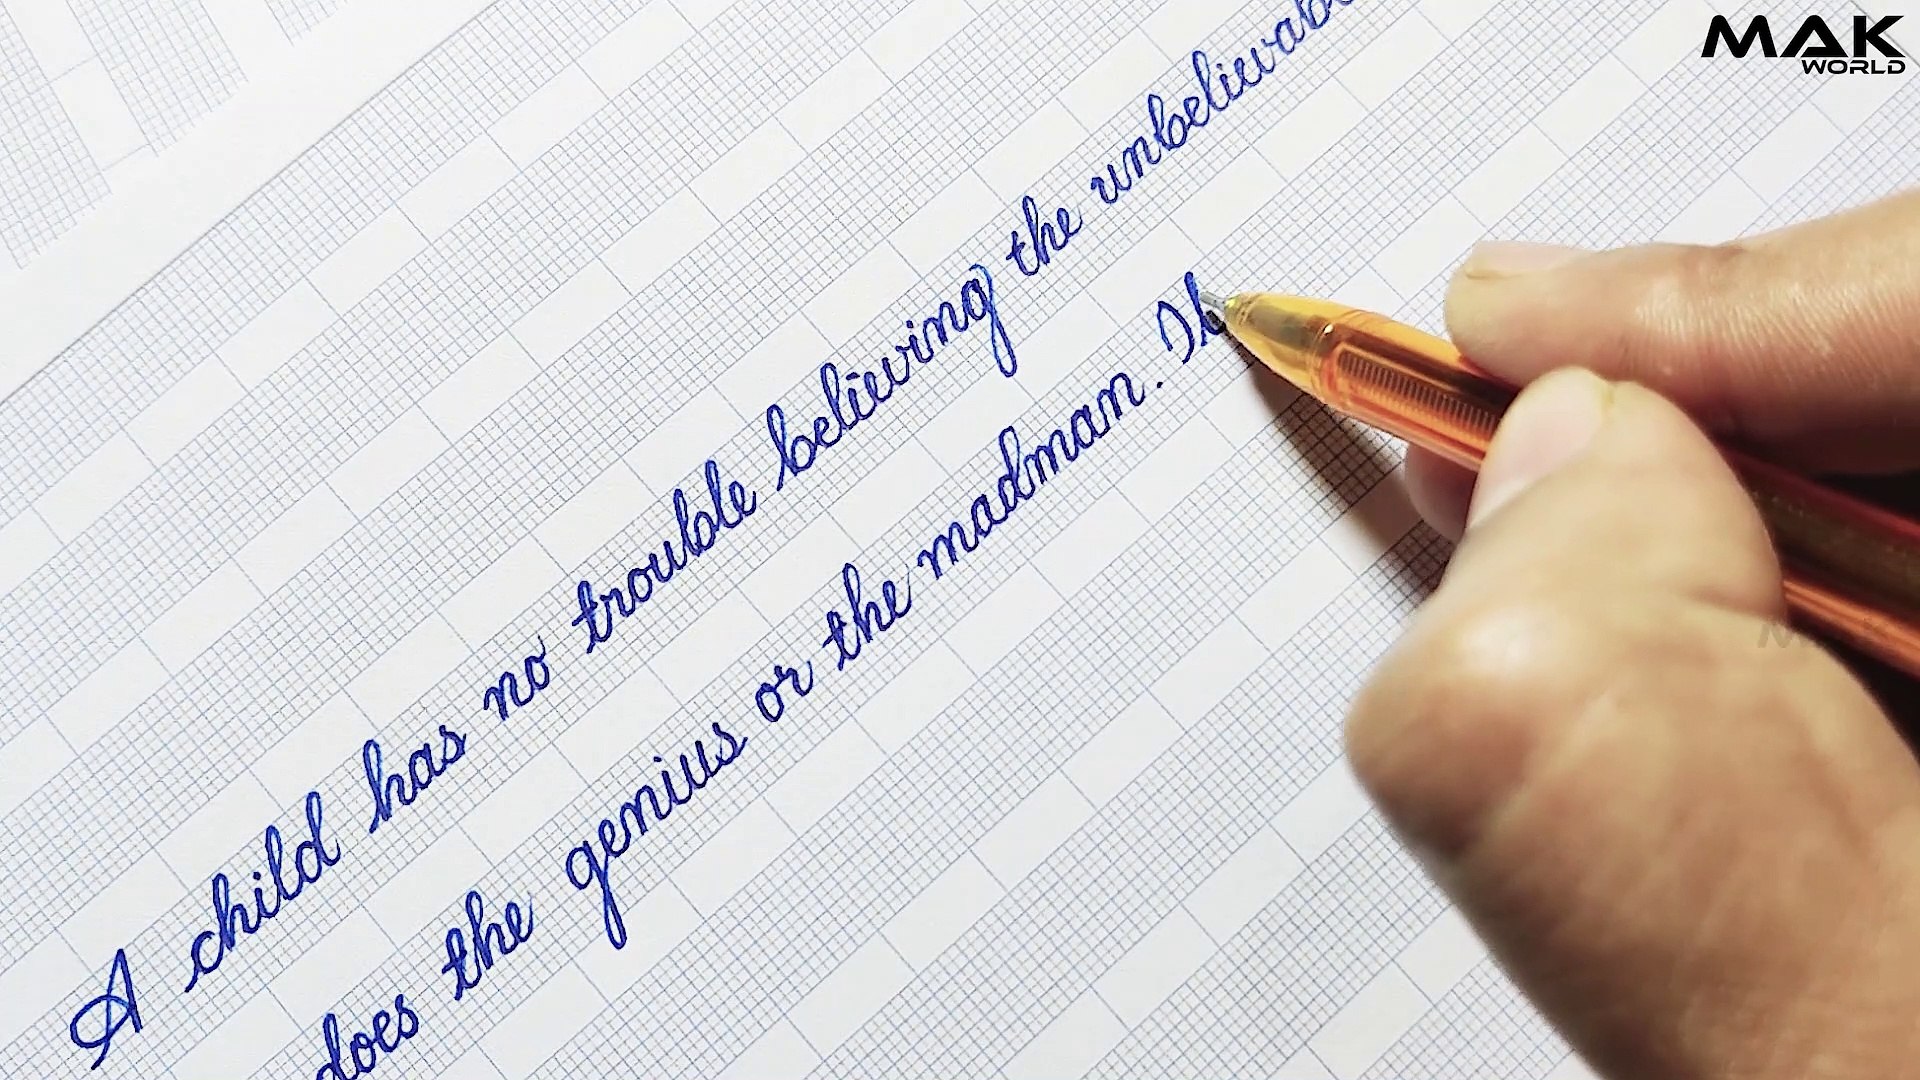 MAK
WORLD
A child has no trouble believing the
does the genius or the madman.